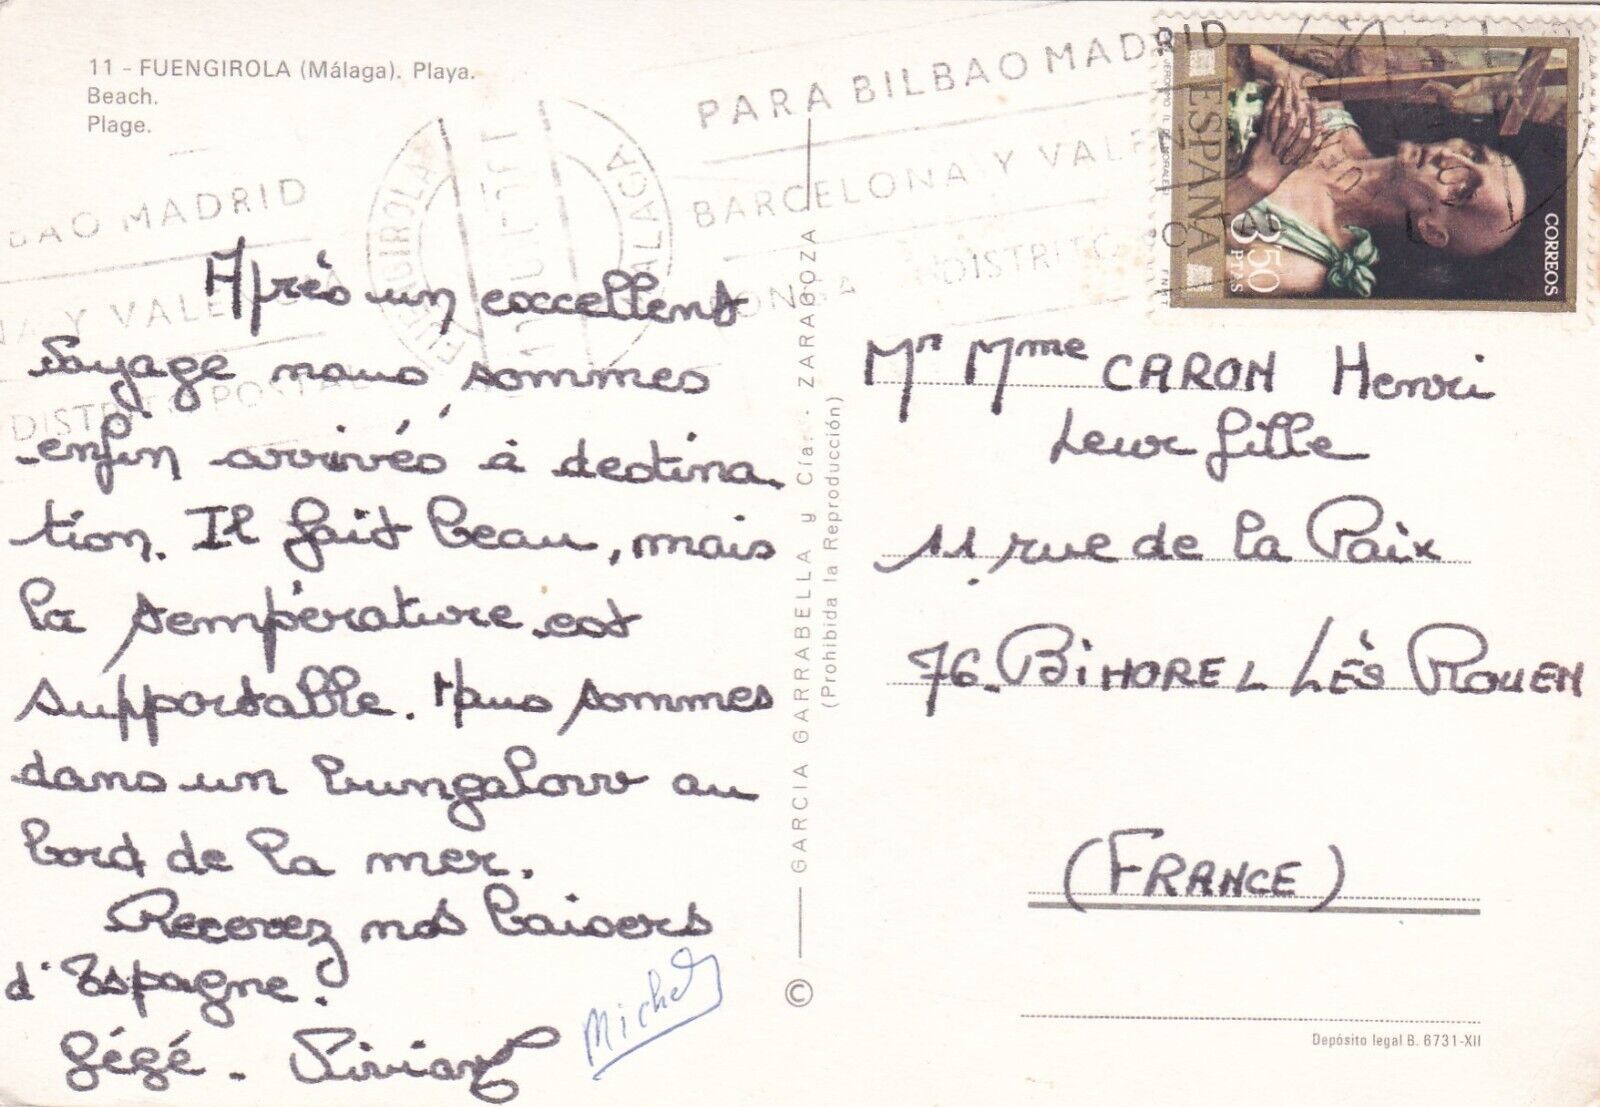 11 - FUENGIROLA (Málaga). Playa.
Beach.
Plage.
PARA BILBAO MADRID
BARCELONA Y VALENCIA
PONGA DISTRITO
BAO MADRID
NA Y VALENCIA
DISTRITO POSTAL
FUENGIROLA
MALAGA
ESPAÑA
CORREOS
3,50
PTS
Après un excellent
voyage nous sommes
enfin arrivés à destina-
tion. Il fait beau, mais
la température est
supportable. Nous sommes
dans un bungalow au
bord de la mer.
Recevez nos baisers
d'Espagne.
Gégé - Viviane
Michel
GARCIA GARRABELLA y Cía. - ZARAGOZA
(Prohibida la Reproducción)
©
Mr Mme CARON Henri
Leur fille
11 rue de la Paix
76. BIHOREL LÈS ROUEN
(FRANCE)
Depósito legal B. 6731-XII